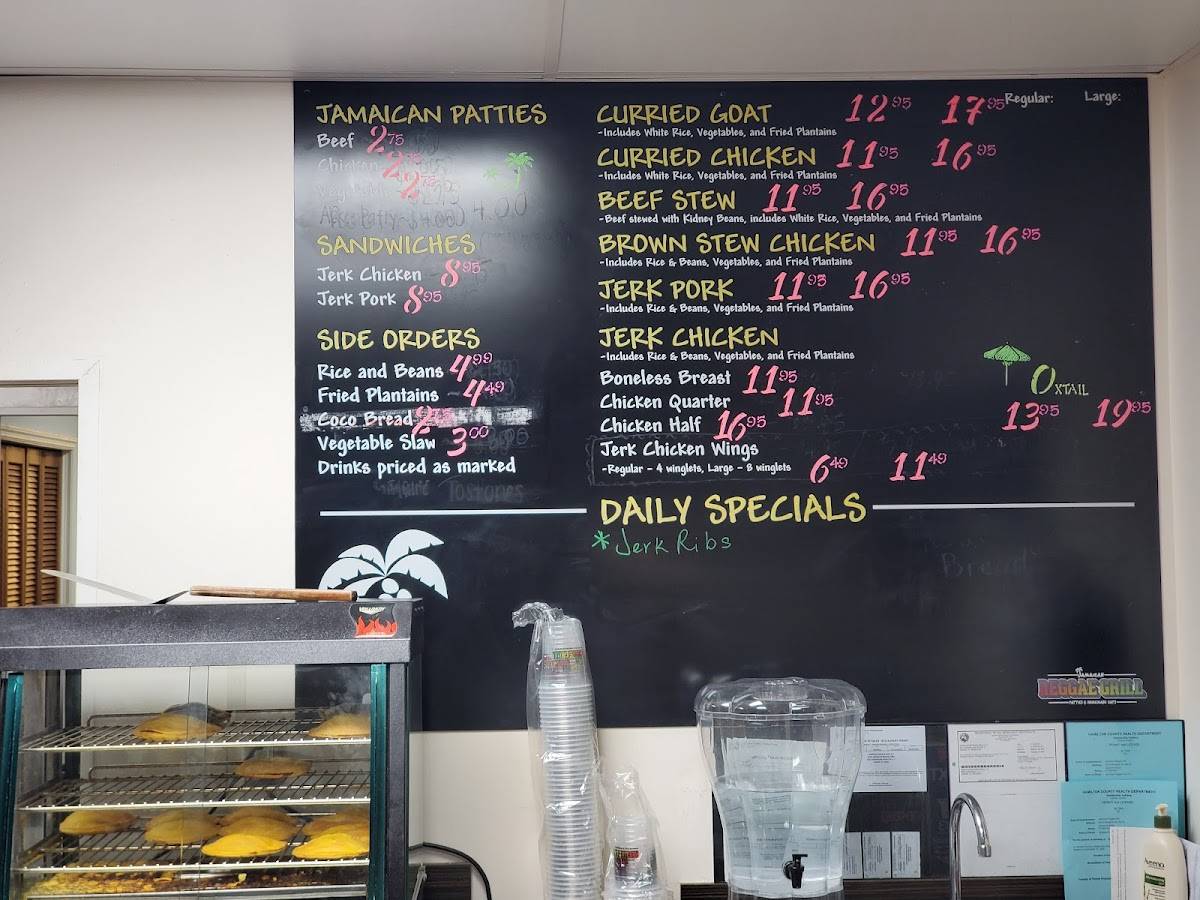 JAMAICAN PATTIES
Beef 2.75
Chicken 2.75
2.75
4.00
SANDWICHES
Jerk Chicken 8.95
Jerk Pork 8.95
SIDE ORDERS
Rice and Beans 4.99
Fried Plantains 4.49
Coco Bread
Vegetable Slaw 3.00
Drinks priced as marked
Tostones
Regular: Large:
CURRIED GOAT 12.95 17.95
-Includes White Rice, Vegetables, and Fried Plantains
CURRIED CHICKEN 11.95 16.95
-Includes White Rice, Vegetables, and Fried Plantains
BEEF STEW 11.95 16.95
-Beef stewed with Kidney Beans, includes White Rice, Vegetables, and Fried Plantains
BROWN STEW CHICKEN 11.95 16.95
-Includes Rice & Beans, Vegetables, and Fried Plantains
JERK PORK 11.95 16.95
-Includes Rice & Beans, Vegetables, and Fried Plantains
JERK CHICKEN
-Includes Rice & Beans, Vegetables, and Fried Plantains
Boneless Breast 11.95
Chicken Quarter 11.95
Chicken Half 16.95
Jerk Chicken Wings
-Regular - 4 winglets, Large - 8 winglets 6.49 11.49
OXTAIL
13.95 19.95
DAILY SPECIALS
*Jerk Ribs
Bread
JAMAICAN
REGGAE GRILL
HAMILTON COUNTY HEALTH DEPARTMENT
HAMILTON COUNTY HEALTH DEPARTMENT
Aveeno